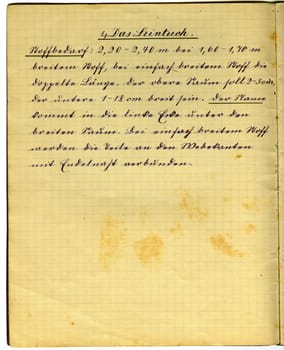 4. Das Leintuch.
Stoffbedarf: 2,20 - 2,40 m bei 1,60 - 1,70 m
breitem Stoff, bei einfach breitem Stoff die
doppelte Länge. Der obere Saum soll 2-3 cm,
der untere 1-1½ cm breit sein. Der Name
kommt in die linke Ecke unter den
breiten Saume. Bei einfach breitem Stoff
werden die Teile an den Webekanten
mit Endelnaht verbunden.